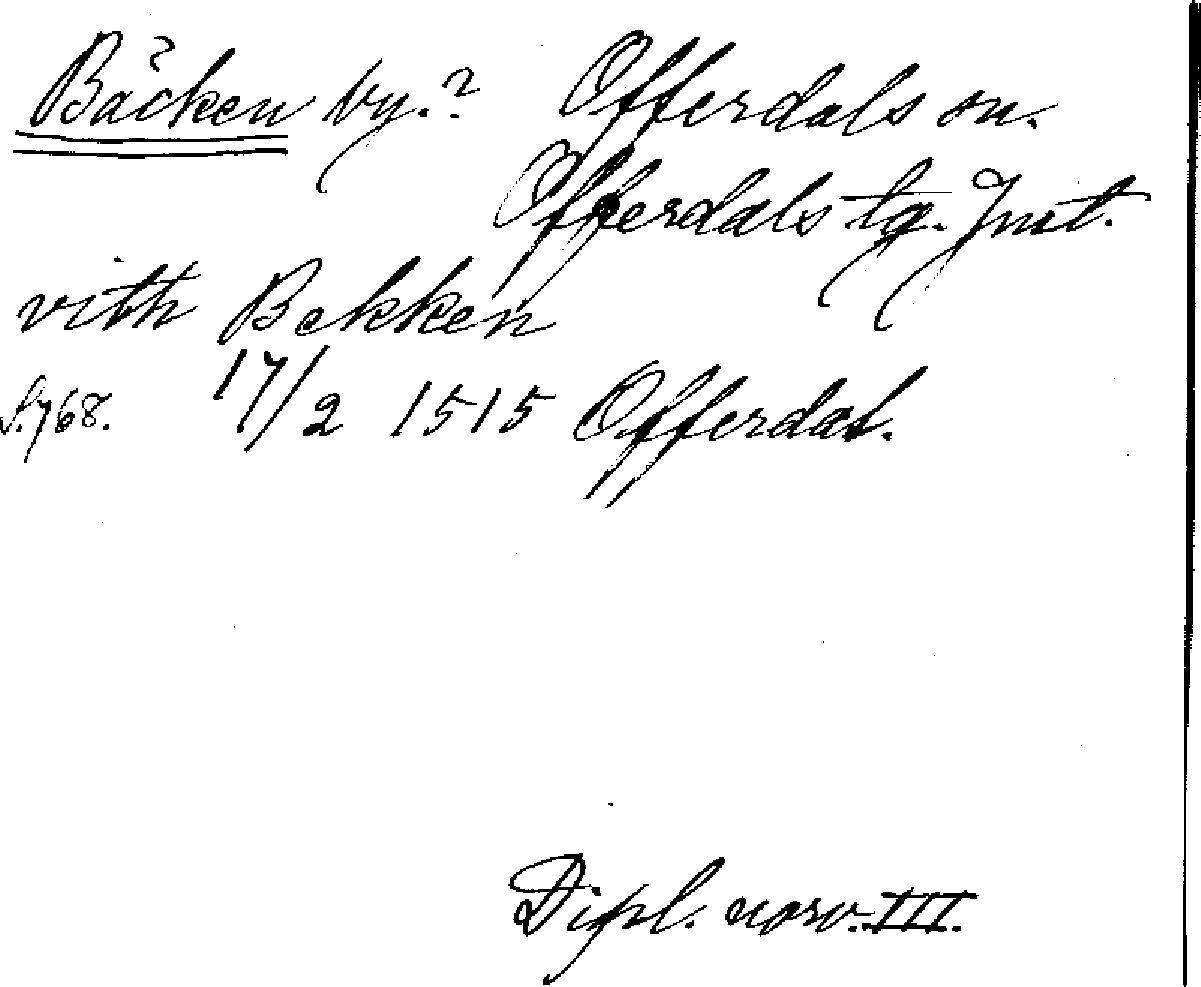 Bäcken by.? Offerdals sn.
Offerdals tg. Jmt.
vith Bekken
S.768. 17/2 1515 Offerdal.
Dipl. norv. III.